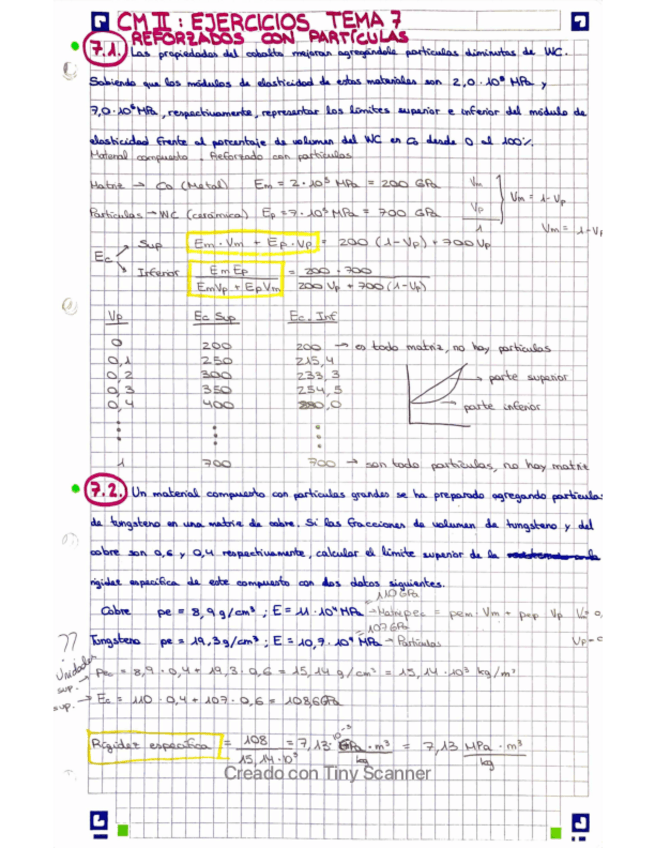 CM II : EJERCICIOS TEMA 7
REFORZADOS CON PARTÍCULAS
7.1. Las propiedades del cobalto mejoran agregándole partículas diminutas de WC.
Sabiendo que los módulos de elasticidad de estos materiales son 2,0·10⁵ MPa y
7,0·10⁵ MPa, respectivamente, representar los límites superior e inferior del módulo de
elasticidad frente al porcentaje de volumen del WC en Co desde 0 al 100%.
Material compuesto. Reforzado con partículas
Matriz → Co (Metal) Em = 2·10⁵ MPa = 200 GPa Vm
Partículas → WC (cerámica) Ep = 7·10⁵ MPa = 700 GPa Vp
1
Vm = 1-Vp
Vm = 1-Vp
Ec Sup Em·Vm + Ep·Vp = 200 (1-Vp) + 700 Vp
Inferior Em Ep / EmVp + EpVm = 200·700 / 200 Vp + 700 (1-Vp)
Vp Ec Sup Ec. Inf
0 200 200 → es todo matriz, no hay partículas
0,1 250 215,4
0,2 300 233,3
0,3 350 254,5
0,4 400 280,0
parte superior
parte inferior
1 700 700 → son todo partículas, no hay matriz
7.2. Un material compuesto con partículas grandes se ha preparado agregando partículas
de tungsteno en una matriz de cobre. Si las fracciones de volumen de tungsteno y del
cobre son 0,6 y 0,4 respectivamente, calcular el límite superior de la
rigidez específica de este compuesto con los datos siguientes.
= 110 GPa
Cobre pe = 8,9 g/cm³ ; E = 11·10⁴ MPa → Matriz pec = pem·Vm + pep·Vp
= 107 GPa
Tungsteno pe = 19,3 g/cm³ ; E = 10,7·10⁴ MPa → Partículas
??
Unidades
sup. → pec = 8,9·0,4 + 19,3·0,6 = 15,14 g/cm³ = 15,14·10³ kg/m³
sup. → Ec = 110·0,4 + 107·0,6 = 108,6 GPa
Rigidez específica = 108 / 15,14·10³ = 7,13·10⁻³ GPa·m³ / kg = 7,13 MPa·m³ / kg
Creado con Tiny Scanner